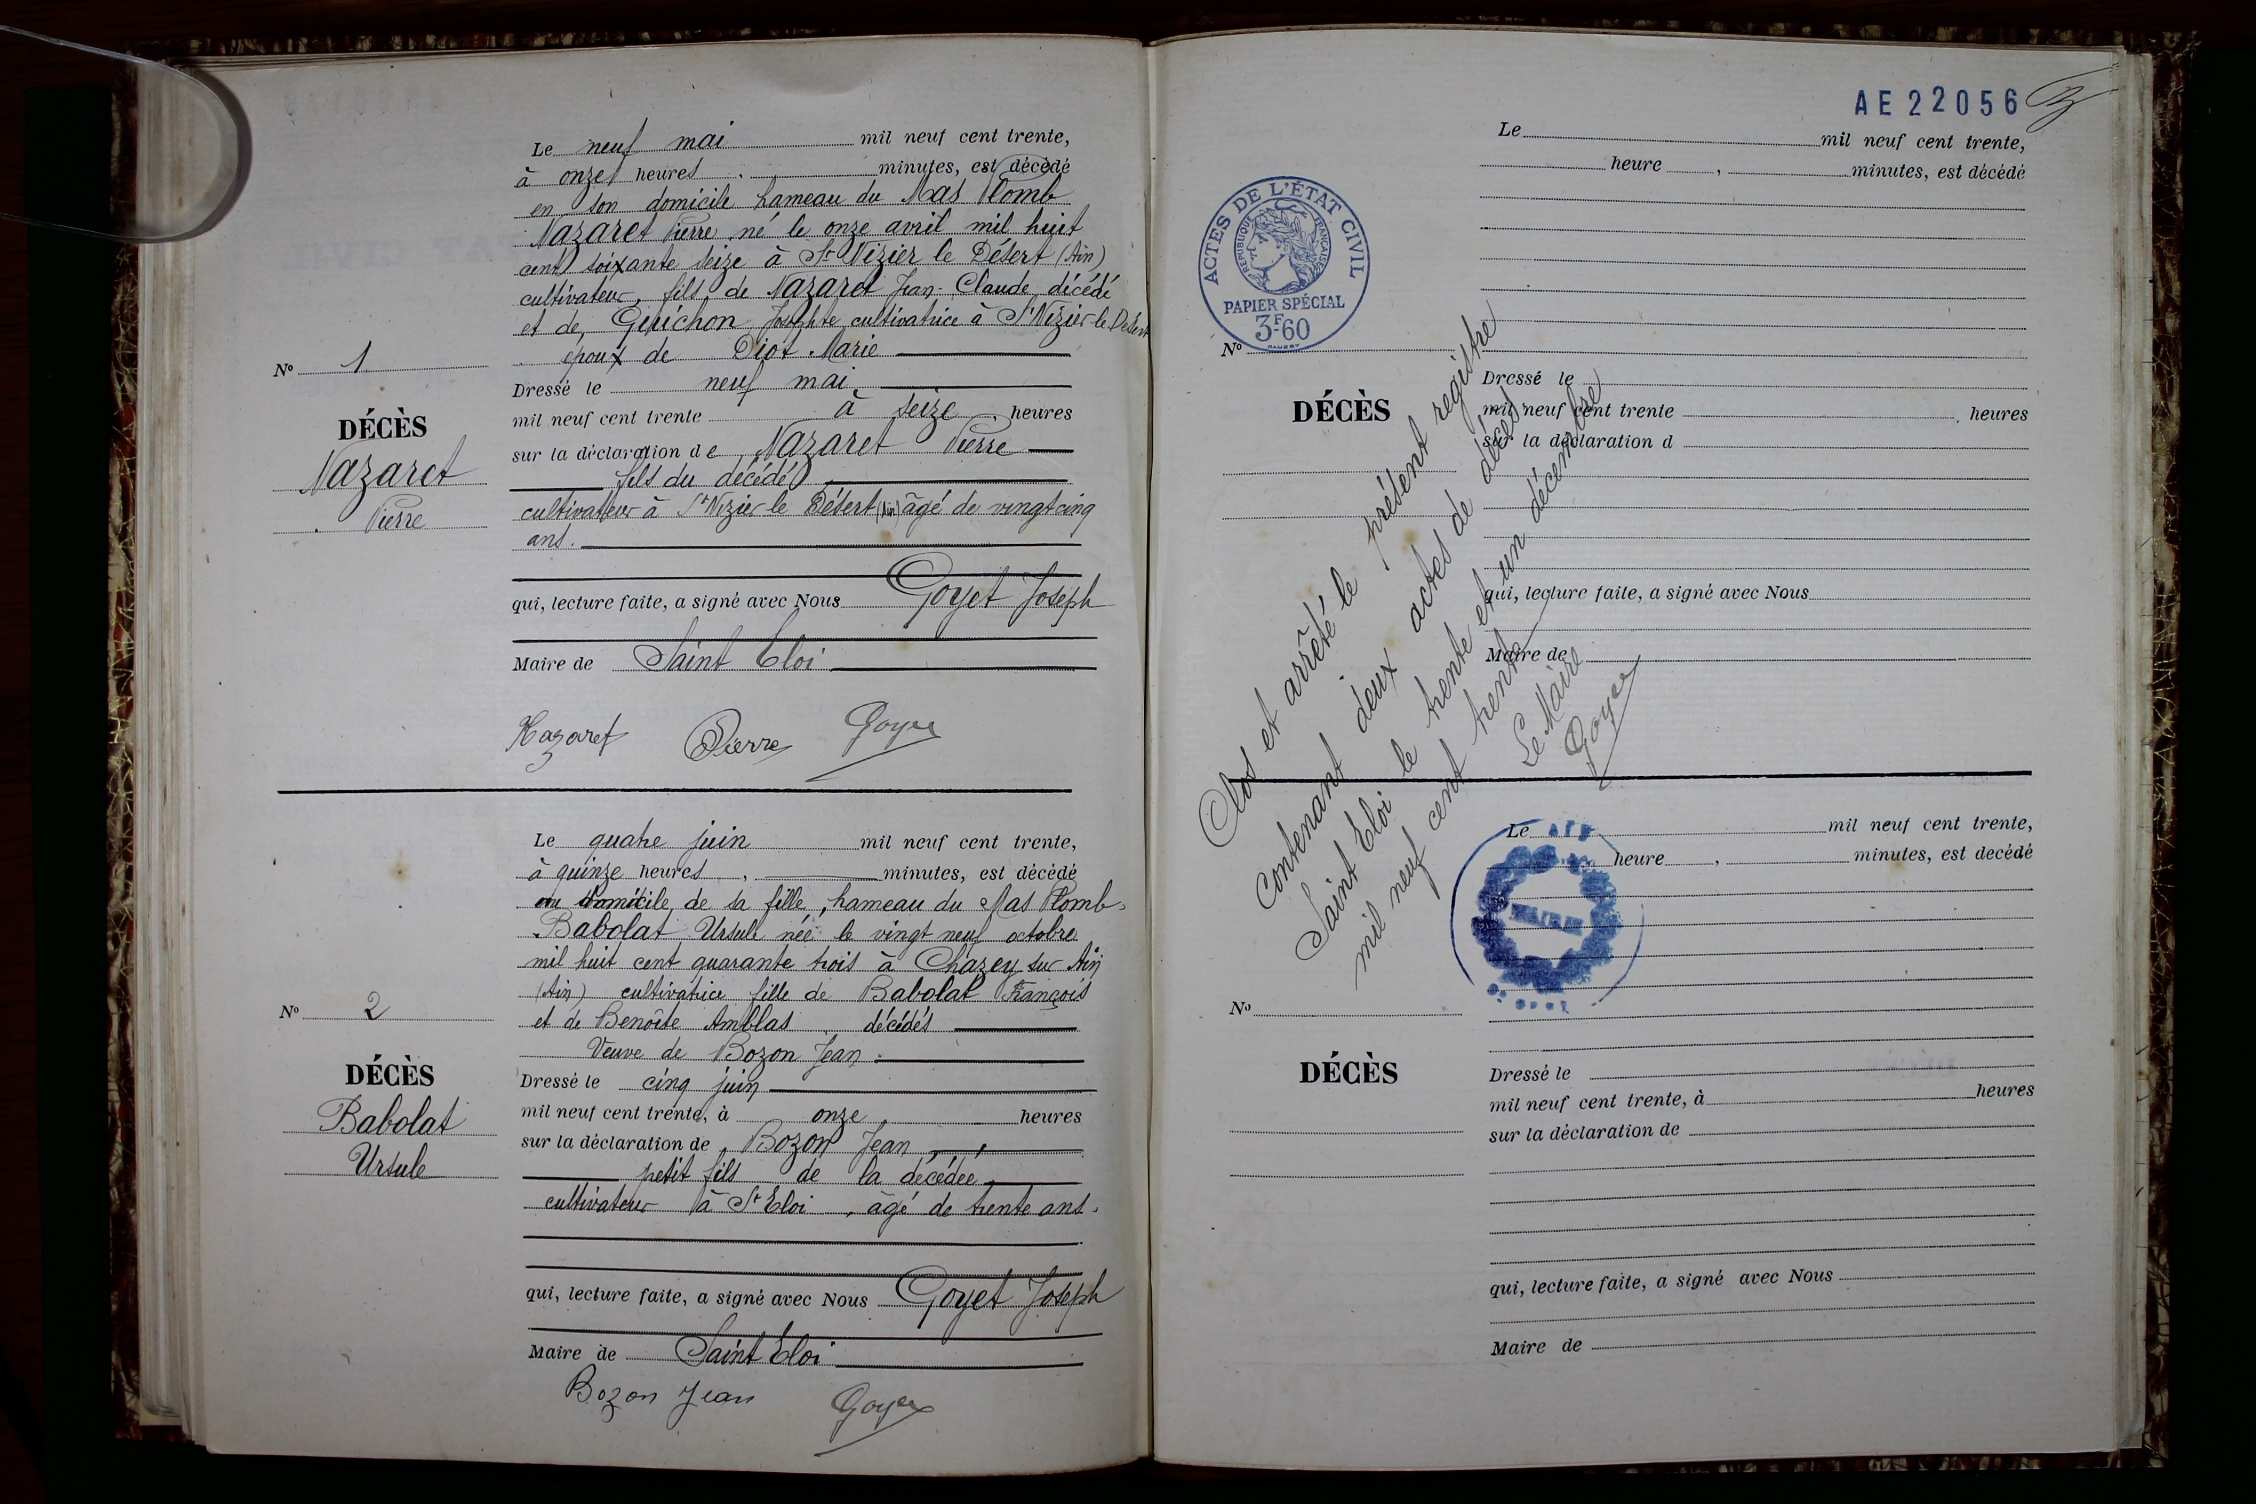 Le neuf mai mil neuf cent trente,
à onze heures , minutes, est décédé
en son domicile hameau du Mas Plomb
Nazaret Pierre né le onze avril mil huit
cent soixante seize à St Nizier le Désert (Ain)
cultivateur, fils de Nazaret Jean-Claude, décédé
et de Josephte cultivatrice à St Nizier-le-Désert
époux de Diot Marie
No 1
DÉCÈS
Nazaret
Pierre
Dressé le neuf mai
mil neuf cent trente à seize , heures
sur la déclaration de Nazaret Pierre
fils du décédé
cultivateur à St Nizier le Désert (Ain) âgé de vingt cinq
ans.
qui, lecture faite, a signé avec Nous Goyet Joseph
Maire de Saint Eloi
Nazaret Pierre Goyet
Le quatre juin mil neuf cent trente,
à quinze heures , minutes, est décédé
au domicile de sa fille, hameau du Mas Plomb,
Babolat Ursule née le vingt neuf octobre
mil huit cent quarante trois à Chazey sur Ain
(Ain) cultivatrice fille de Babolat François
et de Benoîte Amblas décédés
Veuve de Bozon Jean.
No 2
DÉCÈS
Babolat
Ursule
Dressé le cinq juin
mil neuf cent trente, à onze heures
sur la déclaration de Bozon Jean
petit fils de la décédée
cultivateur à St Eloi, âgé de trente ans.
qui, lecture faite, a signé avec Nous Goyet Joseph
Maire de Saint Eloi
Bozon Jean Goyet
AE22056
Le mil neuf cent trente,
heure , minutes, est décédé
ACTES DE L'ÉTAT CIVIL
RÉPUBLIQUE FRANÇAISE
PAPIER SPÉCIAL
3F60
No
DÉCÈS
Dressé le
mil neuf cent trente , heures
sur la déclaration d
qui, lecture faite, a signé avec Nous
Maire de
Clos et arrêté le présent registre
contenant deux actes de décès
Saint Eloi le trente et un décembre
mil neuf cent trente
Le Maire
Goyet
Le mil neuf cent trente,
heure , minutes, est décédé
MAIRIE
No
DÉCÈS
Dressé le
mil neuf cent trente, à heures
sur la déclaration de
qui, lecture faite, a signé avec Nous
Maire de